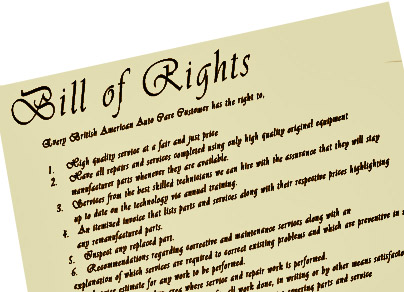 Bill of Rights
Every British American Auto Care Customer has the right to,
1. High quality service at a fair and just price
2. Have all repairs and services completed using only high quality original equipment
manufacturer parts whenever they are available.
3. Services from the best skilled technicians we can hire with the assurance that they will stay
up to date on the technology via annual training.
4. An itemized invoice that lists parts and services along with their respective prices highlighting
any remanufactured parts.
5. Inspect any replaced part.
6. Recommendations regarding corrective and maintenance services along with an
explanation of which services are required to correct existing problems and which are preventive in
estimate for any work to be performed.
area where service and repair work is performed.
all work done, in writing or by other means satisfacto
covering parts and service